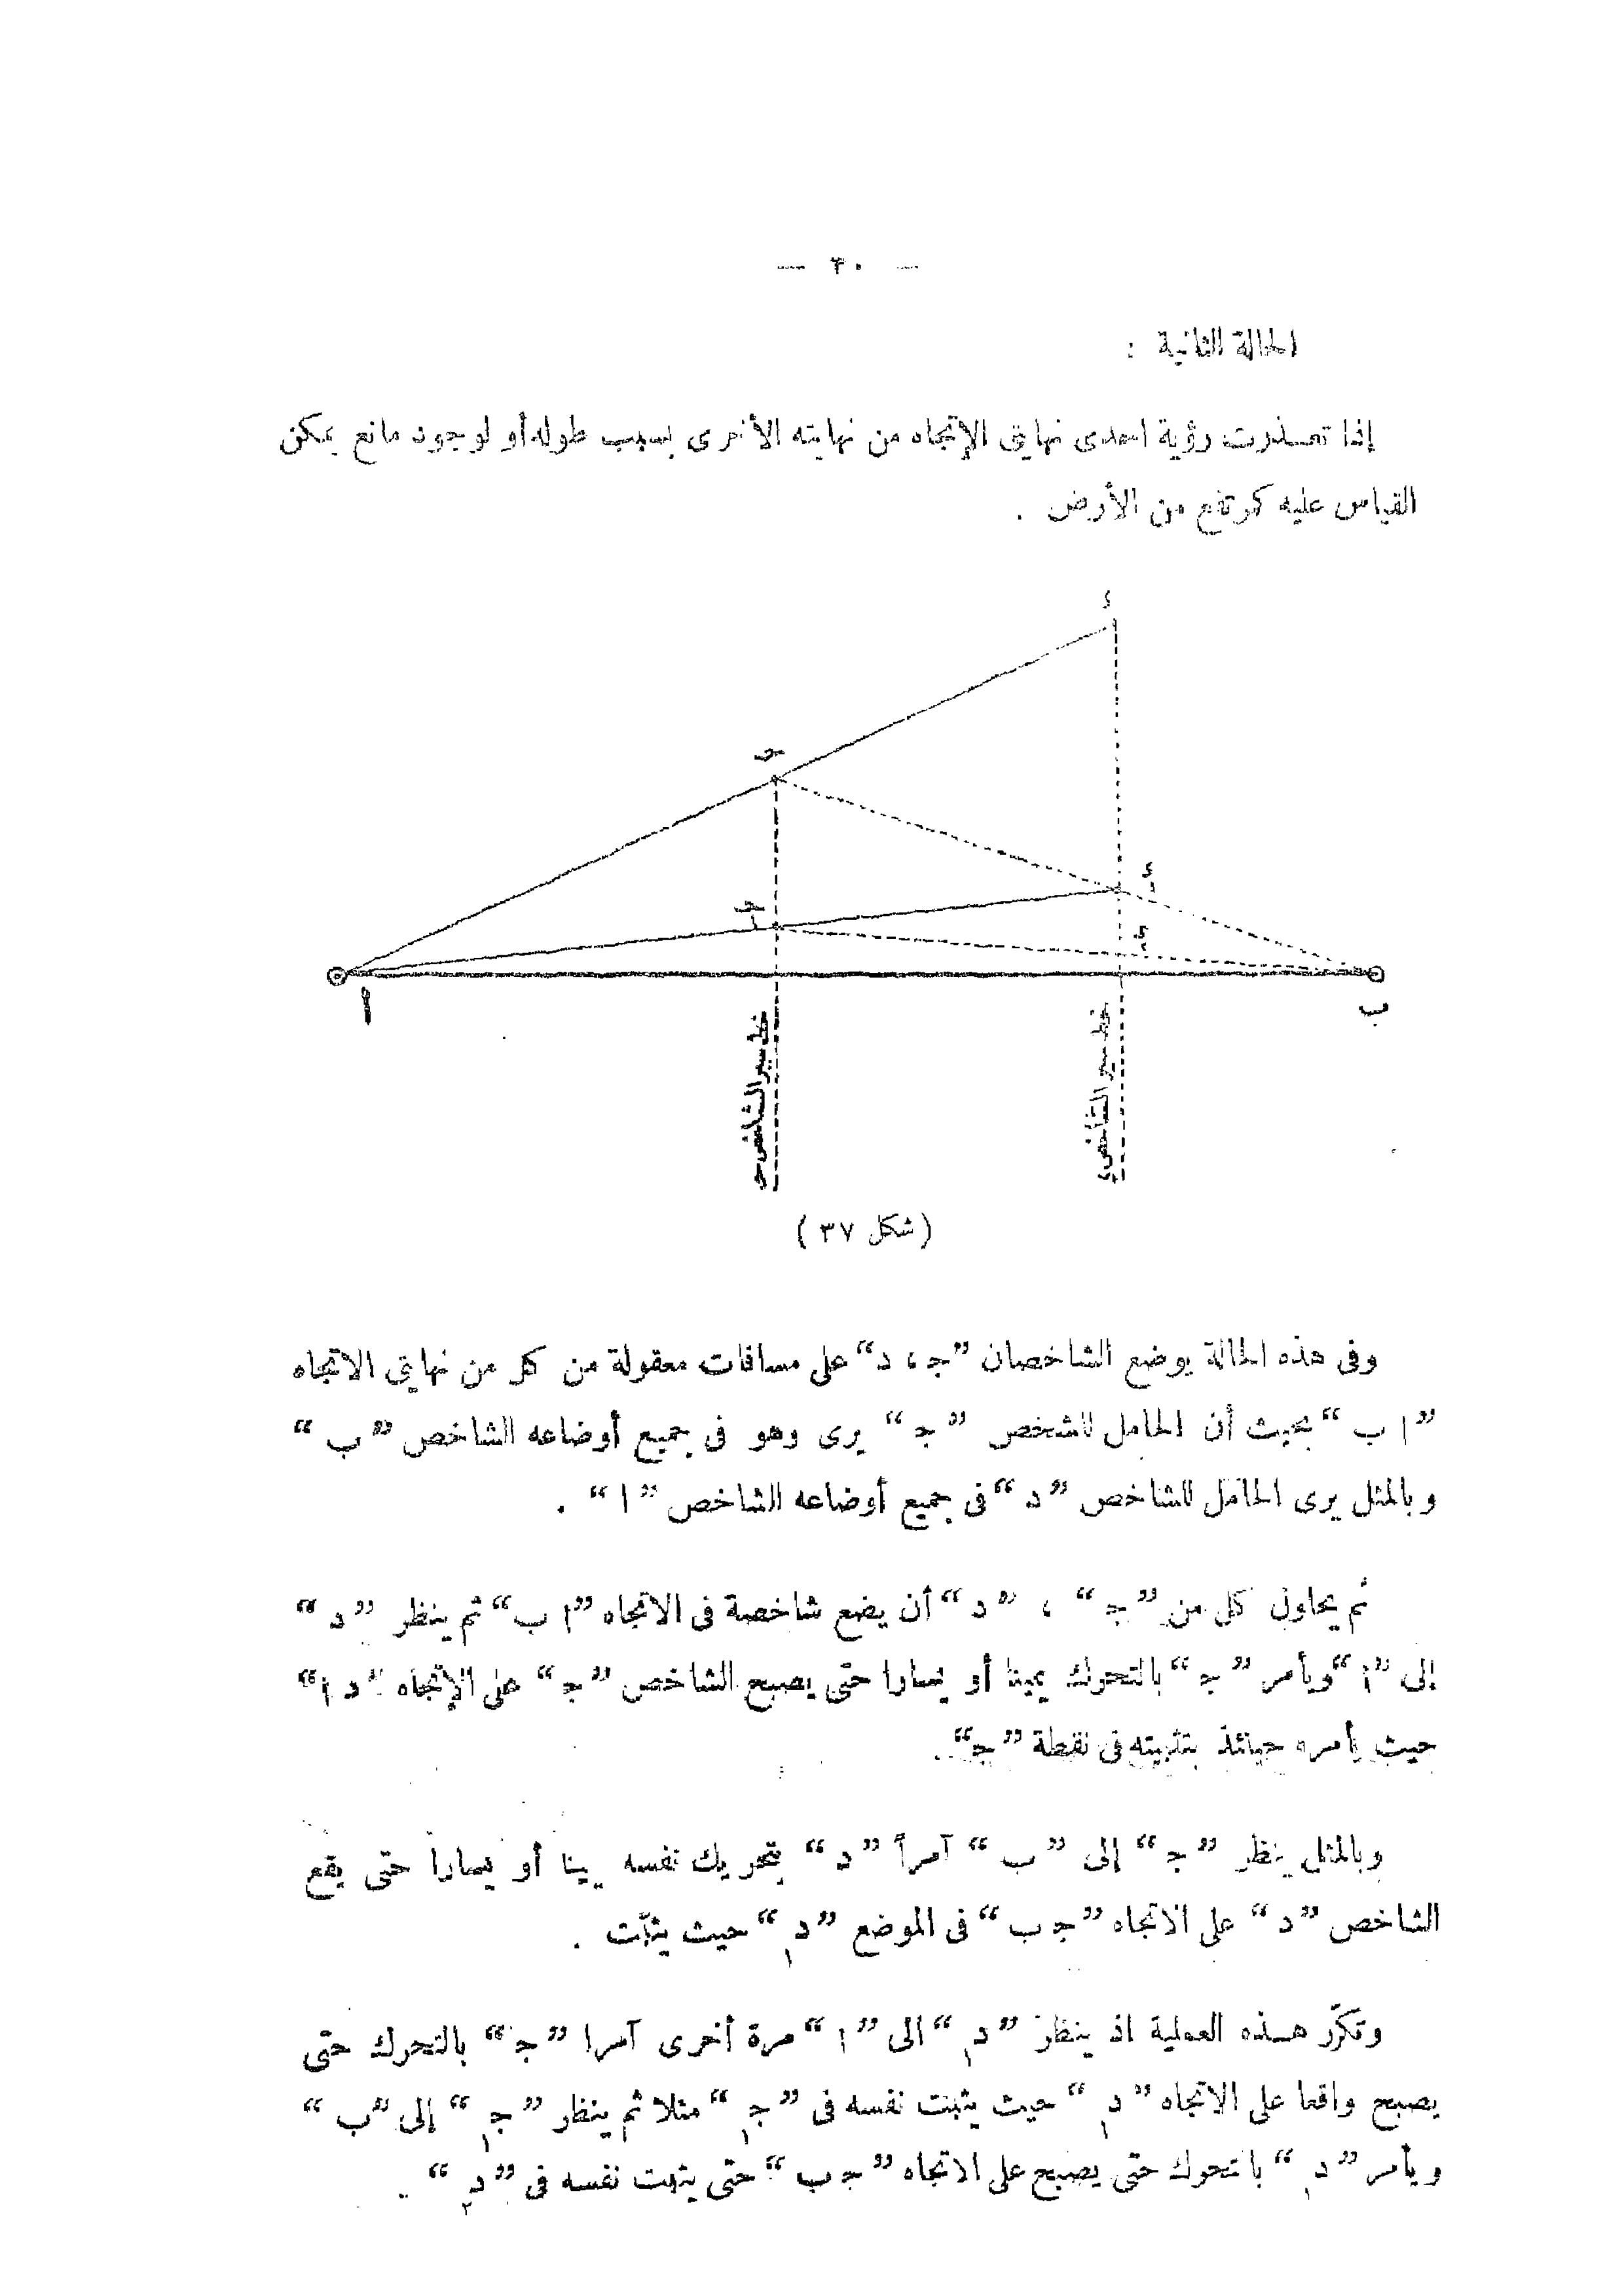 — ٣٠ —
الحالة الثانية :
إذا تعـذرت رؤية احدى نهايتى الإتجاه من نهايته الأخرى بسبب طوله أو لوجود مانع يمكن
القياس عليه كمرتفع من الأرض .
د
ج
د١
ج١
د٢
ا
ب
خط سير الشاخص ج
خط سير الشاخص د
( شكل ٣٧ )
وفى هذه الحالة يوضع الشاخصان ”ج ، د“ على مسافات معقولة من كل من نهايتى الاتجاه
”ا ب“ بحيث أن الحامل للشخص ”ج“ يرى وهو فى جميع أوضاعه الشاخص ”ب“
وبالمثل يرى الحامل للشاخص ”د“ فى جميع أوضاعه الشاخص ”ا“ .
ثم يحاول كل من ”ج“ ، ”د“ أن يضع شاخصة فى الاتجاه ”ا ب“ ثم ينظر ”د“
إلى ”ا“ ويأمر ”ج“ بالتحرك يمينا أو يسارا حتى يصبح الشاخص ”ج“ على الإتجاه ”د ا“
حيث يأمره حينئذ بتثبيته فى نقطة ”ج“.
وبالمثل ينظر ”ج“ إلى ”ب“ آمراً ”د“ بتحريك نفسه يمينا أو يسارا حتى يقع
الشاخص ”د“ على الاتجاه ”ج ب“ فى الموضع ”د١“ حيث يثبّت .
وتكرّر هـذه العملية اذ ينظر ”د١“ الى ”ا“ مرة أخرى آمرا ”ج“ بالتحرك حتى
يصبح واقعا على الاتجاه ”د١“ حيث يثبت نفسه فى ”ج١“ مثلا ثم ينظر ”ج١“ إلى ”ب“
ويأمر ”د١“ بالتحرك حتى يصبح على الاتجاه ”ج ب“ حتى يثبت نفسه فى ”د٢“ ..